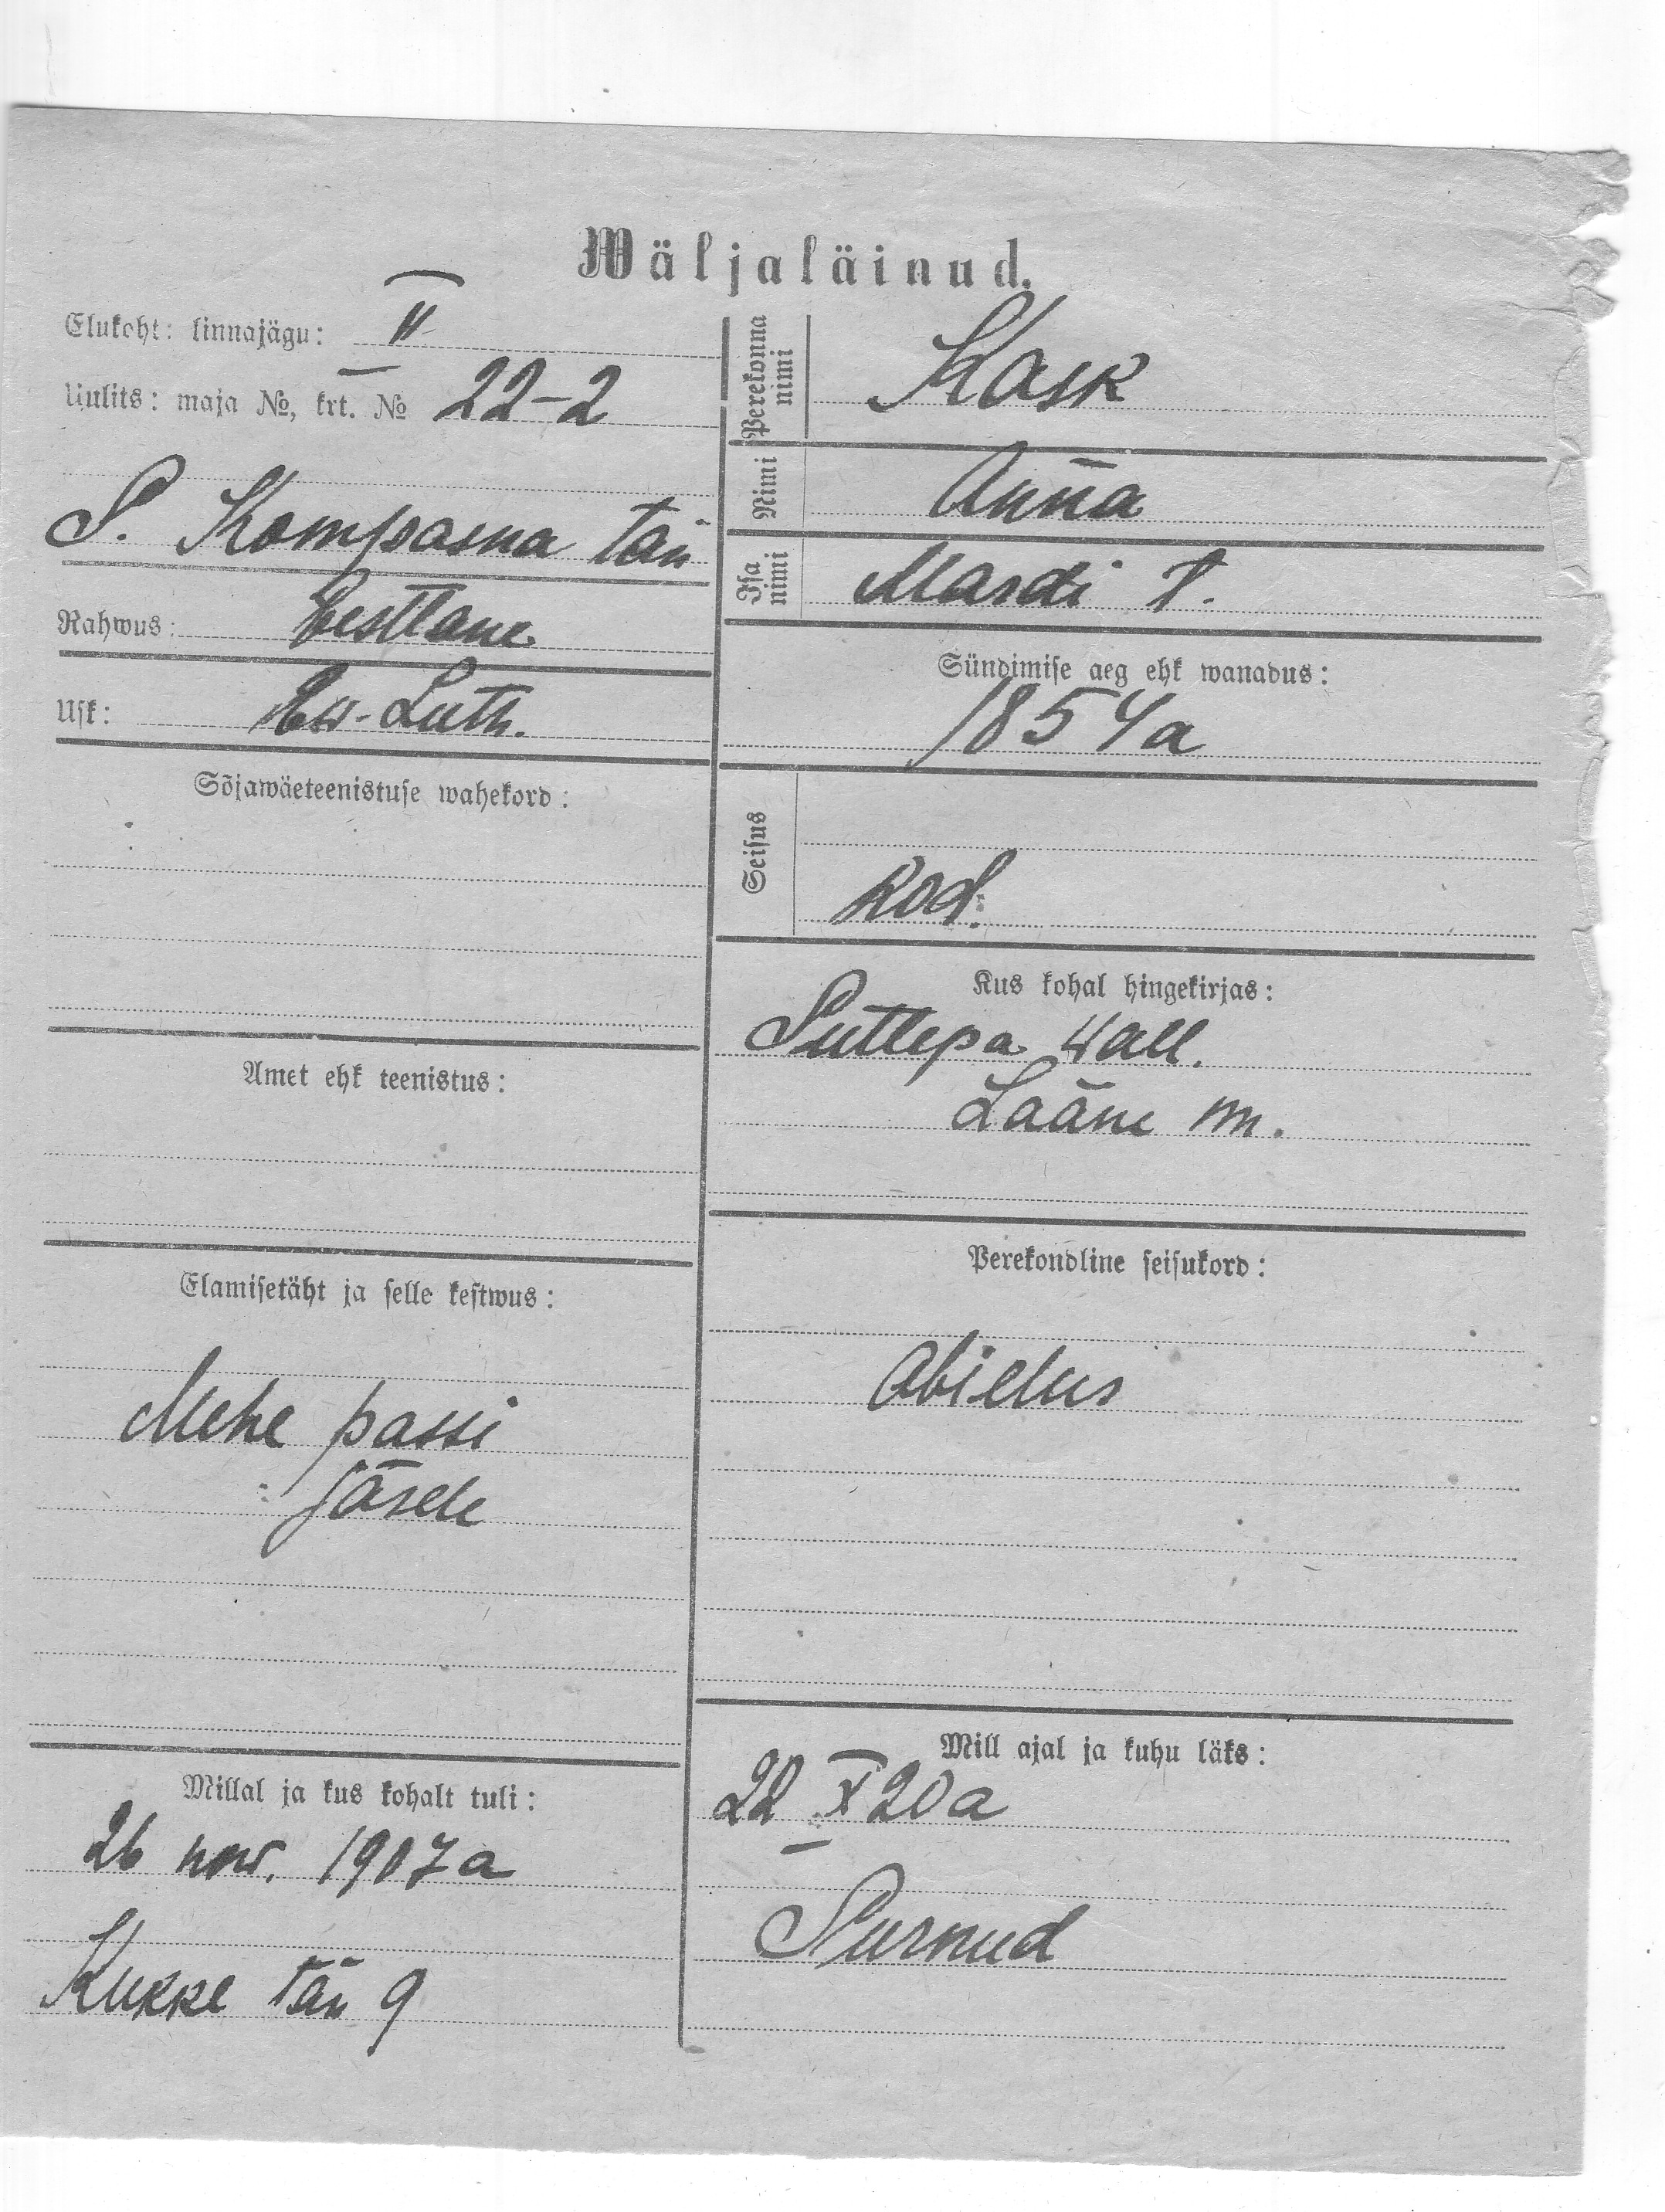 Wäljaläinud.
Elukoht: linnajägu: II
Uulits: maja №, krt. № 22-2
S. Kompasna tän
Rahwus: Eestlane
Usk: Ew-Luth.
Sõjawäeteenistuse wahekord:
Amet ehk teenistus:
Elamisetäht ja selle kestwus:
Mehe passi
järele
Millal ja kus kohalt tuli:
26 now. 1907 a
Kukke tän 9
Perekonna nimi Kask
Nimi Anna
Isa nimi Mardi t.
Sündimise aeg ehk wanadus:
1854 a
Seisus
kod.
Kus kohal hingekirjas:
Sutlepa wall.
Lääne m.
Perekondline seisukord:
Abielus
Mill ajal ja kuhu läks:
22 X 20 a
Surnud